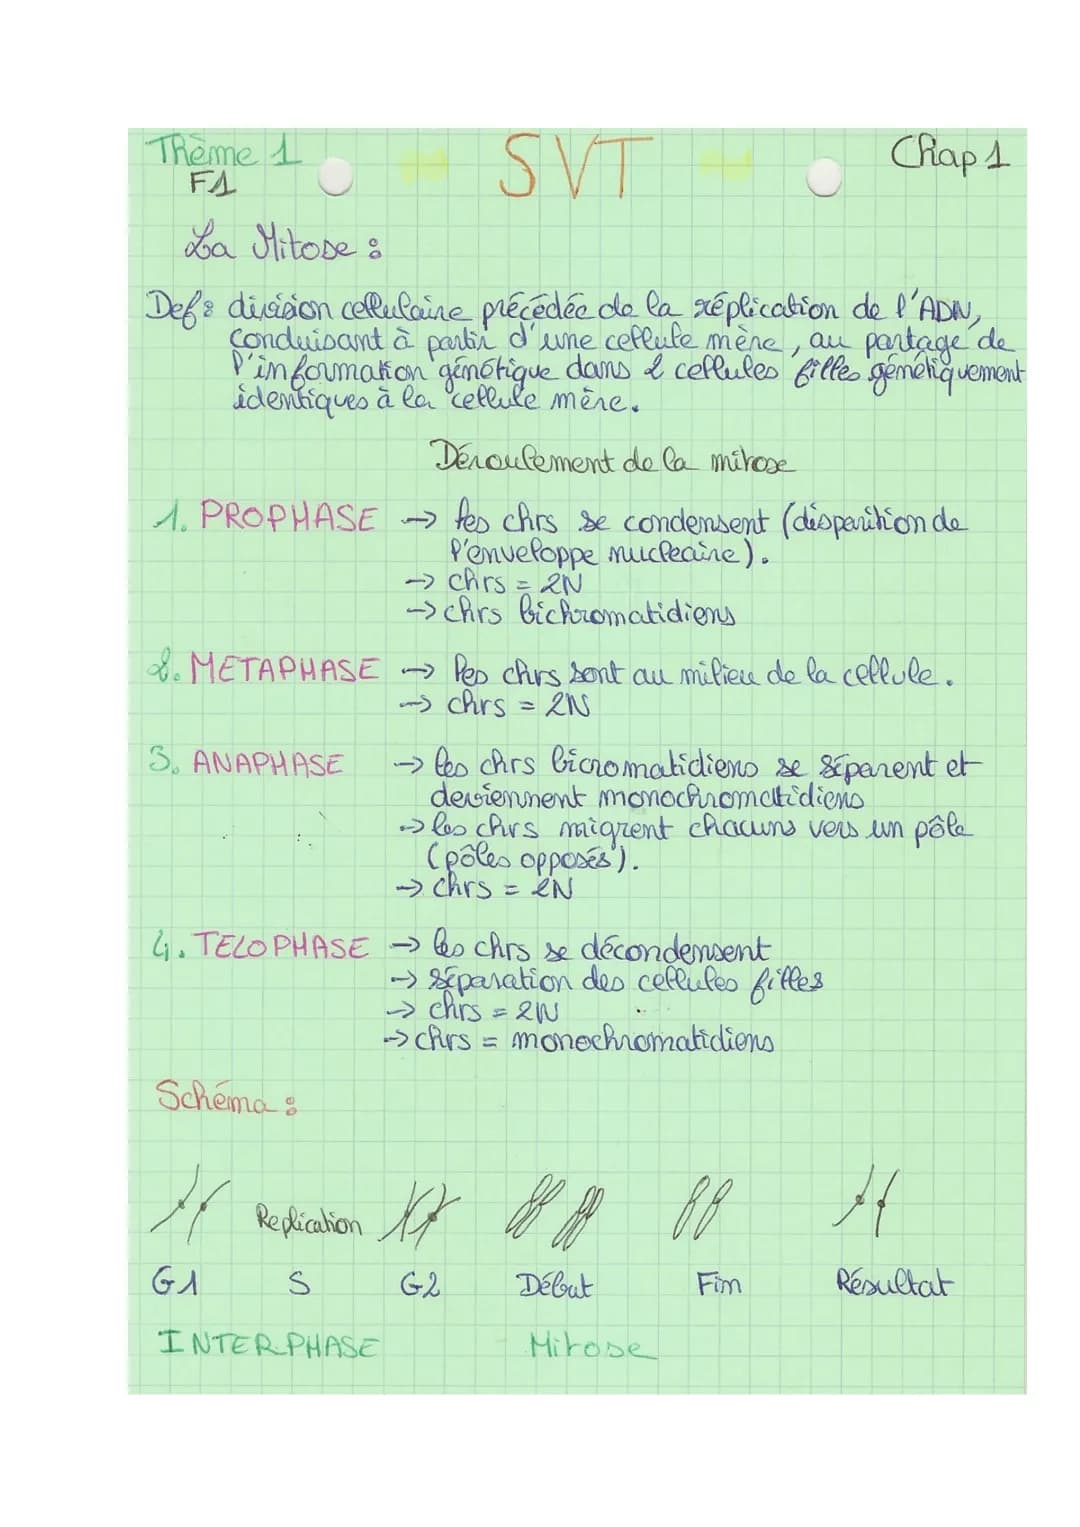 Thème 1 SVT Chap 1
F1
La Mitose :
Def : division cellulaire précédée de la réplication de l'ADN,
conduisant à partir d'une cellule mère, au partage de
l'information génétique dans 2 cellules filles génétiquement
identiques à la cellule mère.
Déroulement de la mitose
1. PROPHASE → les chrs se condensent (disparition de
l'enveloppe nucleaire).
→ chrs = 2N
→ chrs bichromatidiens
2. METAPHASE → les chrs sont au milieu de la cellule.
→ chrs = 2N
3. ANAPHASE → les chrs bicromatidiens se séparent et
deviennent monochromatidiens
→ les chrs migrent chacuns vers un pôle
(pôles opposés).
→ chrs = 2N
4. TELOPHASE → les chrs se décondensent
→ séparation des cellules filles
→ chrs = 2N
→ chrs = monochromatidiens
Schéma :
Replication
G1 S G2 Début Fin Résultat
INTERPHASE Mitose